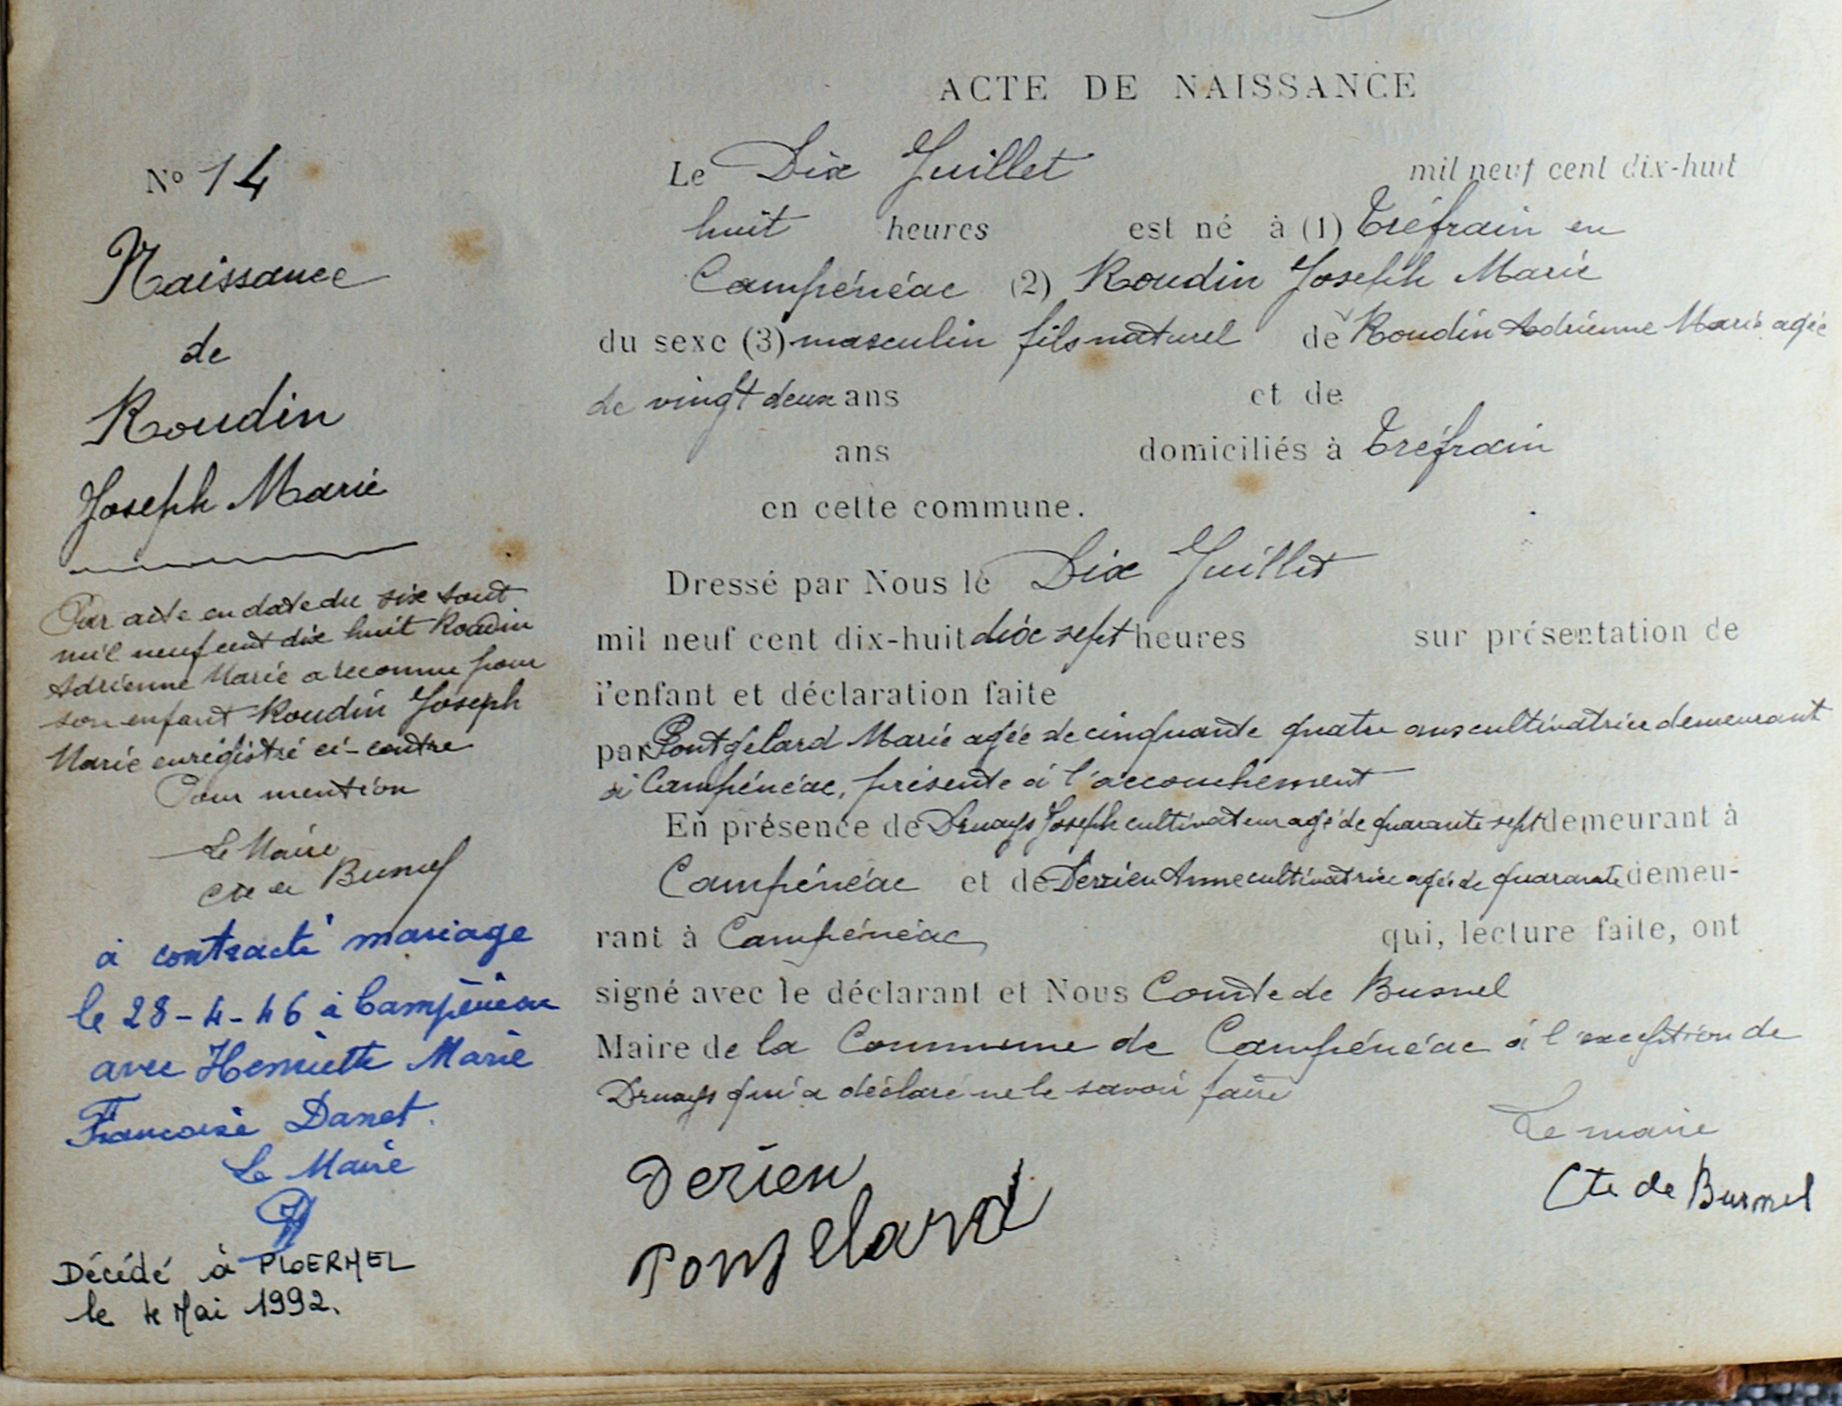 ACTE DE NAISSANCE
N° 14
Naissance
de
Roudin
Joseph Marie
Par acte en date du six août
mil neuf cent dix huit Roudin
Adrienne Marie a reconnu pour
son enfant Roudin Joseph
Marie enregistré ci-contre
Pour mention
Le Maire
Cte de Busnel
a contracté mariage
le 28-4-46 à Campénéac
avec Henriette Marie
Françoise Danet.
Le Maire
Décédé à PLOERMEL
le 4 Mai 1992.
Le Dix Juillet mil neuf cent dix-huit
huit heures est né à (1) Tréfrain en
Campénéac (2) Roudin Joseph Marie
du sexe (3) masculin fils naturel de Roudin Adrienne Marie agée
de vingt deux ans et de
ans domiciliés à Tréfrain
en cette commune.
Dressé par Nous le Dix Juillet
mil neuf cent dix-huit dix sept heures sur présentation de
l'enfant et déclaration faite
par Pontgélard Marie agée de cinquante quatre ans cultivatrice demeurant
à Campénéac, présente à l'accouchement
En présence de Druays Joseph cultivateur agé de quarante sept demeurant à
Campénéac et de Derrien Anne cultivatrice agée de quarante demeu-
rant à Campénéac qui, lecture faite, ont
signé avec le déclarant et Nous Comte de Busnel
Maire de la Commune de Campénéac à l'exception de
Druays qui a déclaré ne le savoir faire
Le maire
Derien
Cte de Busnel